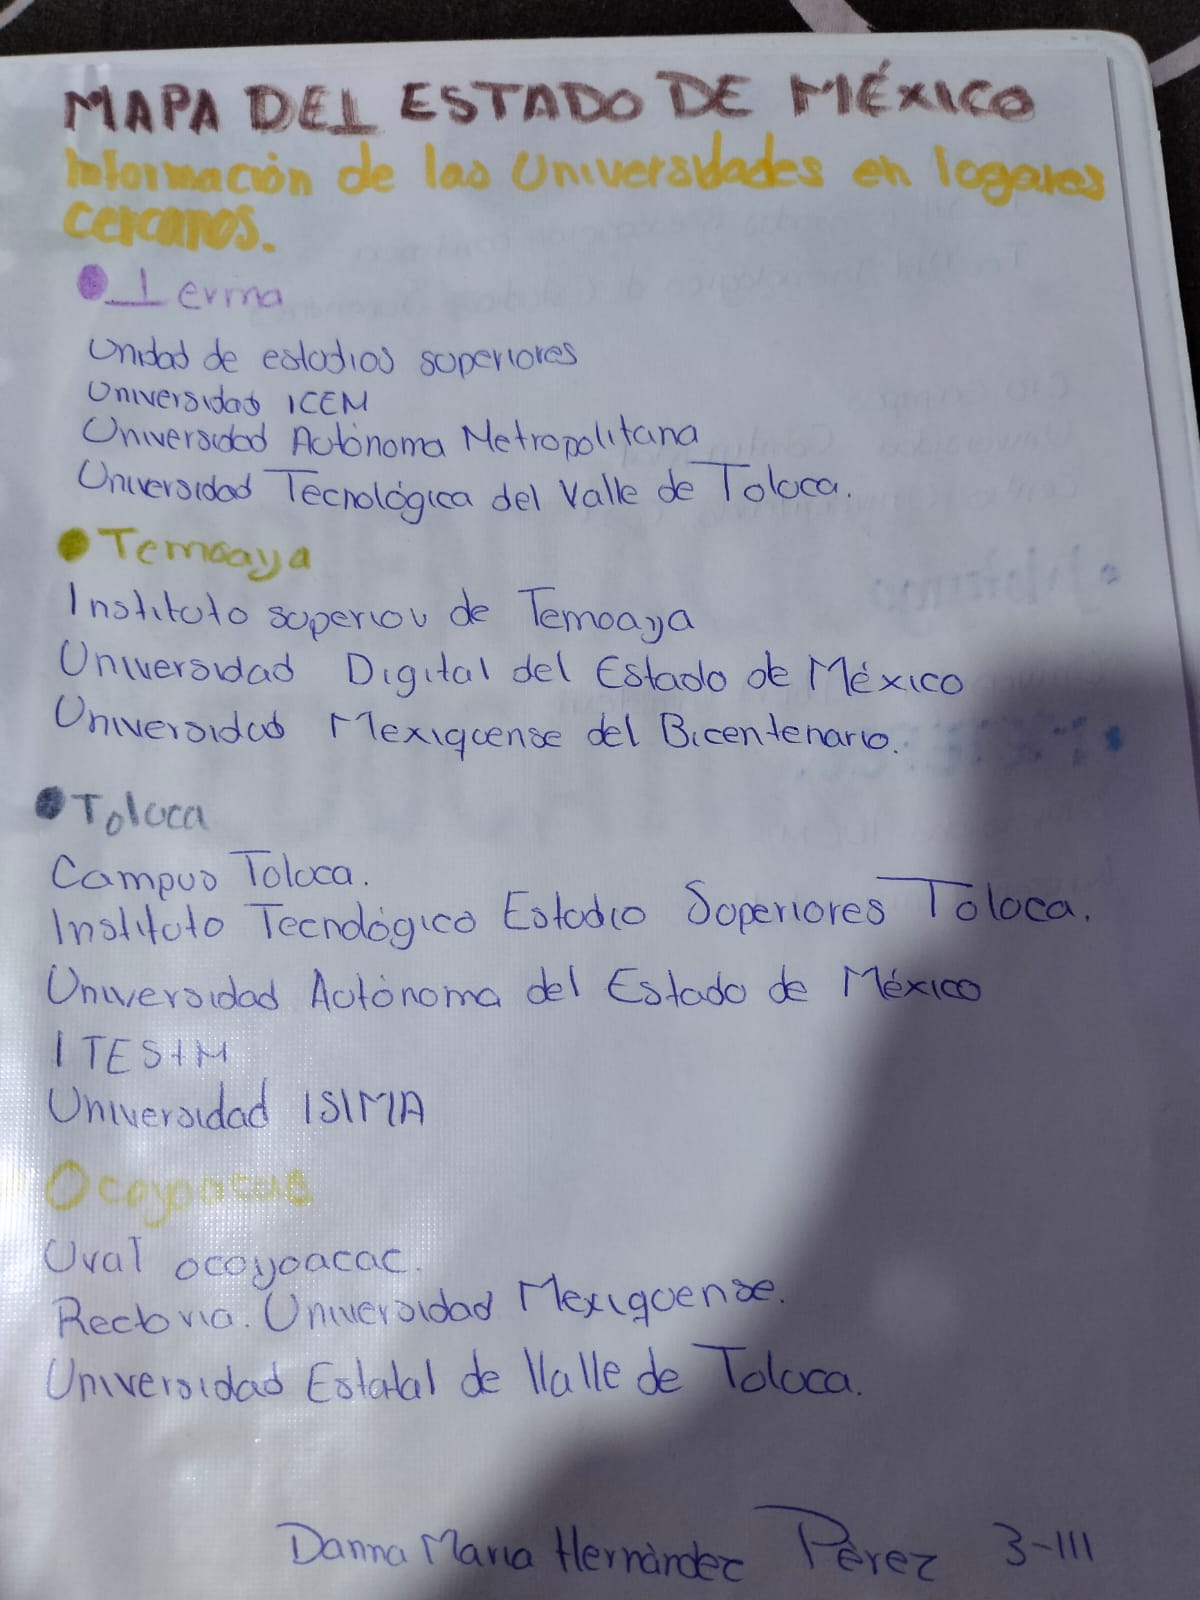 MAPA DEL ESTADO DE MÉXICO
Información de las Universidades en logares
cercanos.
Lerma
Unidad de estudios superiores
Universidad ICEM
Universidad Autónoma Metropolitana
Universidad Tecnológica del Valle de Toluca.
Temoaya
Instituto superior de Temoaya
Universidad Digital del Estado de México
Universidad Mexiquense del Bicentenario.
Toluca
Campus Toluca.
Instituto Tecnológico Estudio Superiores Toluca.
Universidad Autónoma del Estado de México
ITES+M
Universidad ISIMA
Uval ocoyoacac.
Rectoria. Universidad Mexiquense.
Universidad Estatal de Valle de Toluca.
Danna Maria Hernández Pérez 3-III